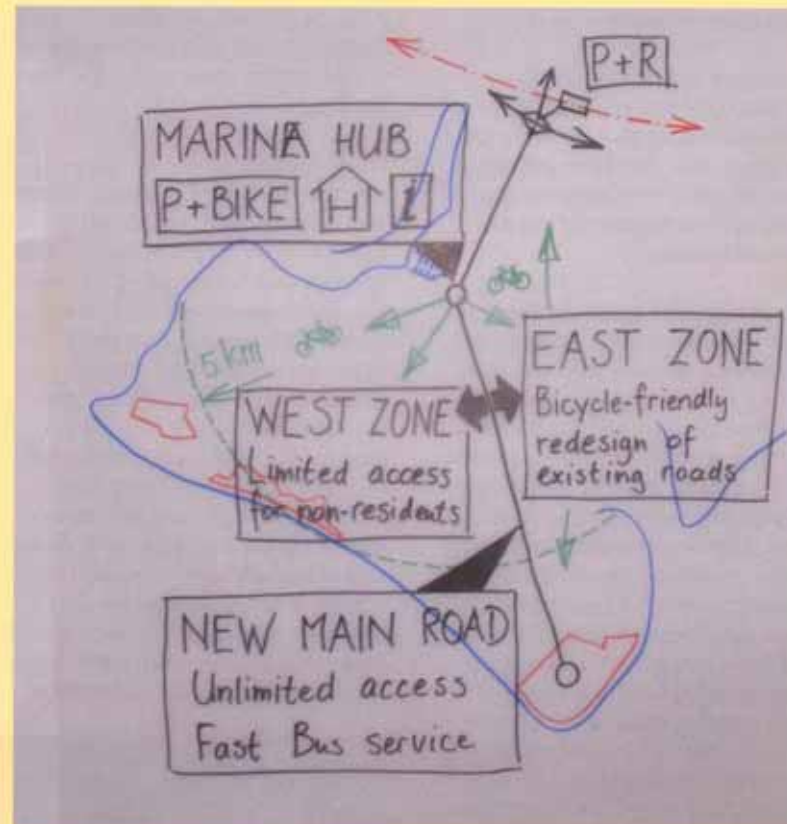 P+R
MARINA HUB
P+BIKE H i
5 km
WEST ZONE
Limited access
for non-residents
EAST ZONE
Bicycle-friendly
redesign of
existing roads
NEW MAIN ROAD
Unlimited access
Fast Bus service